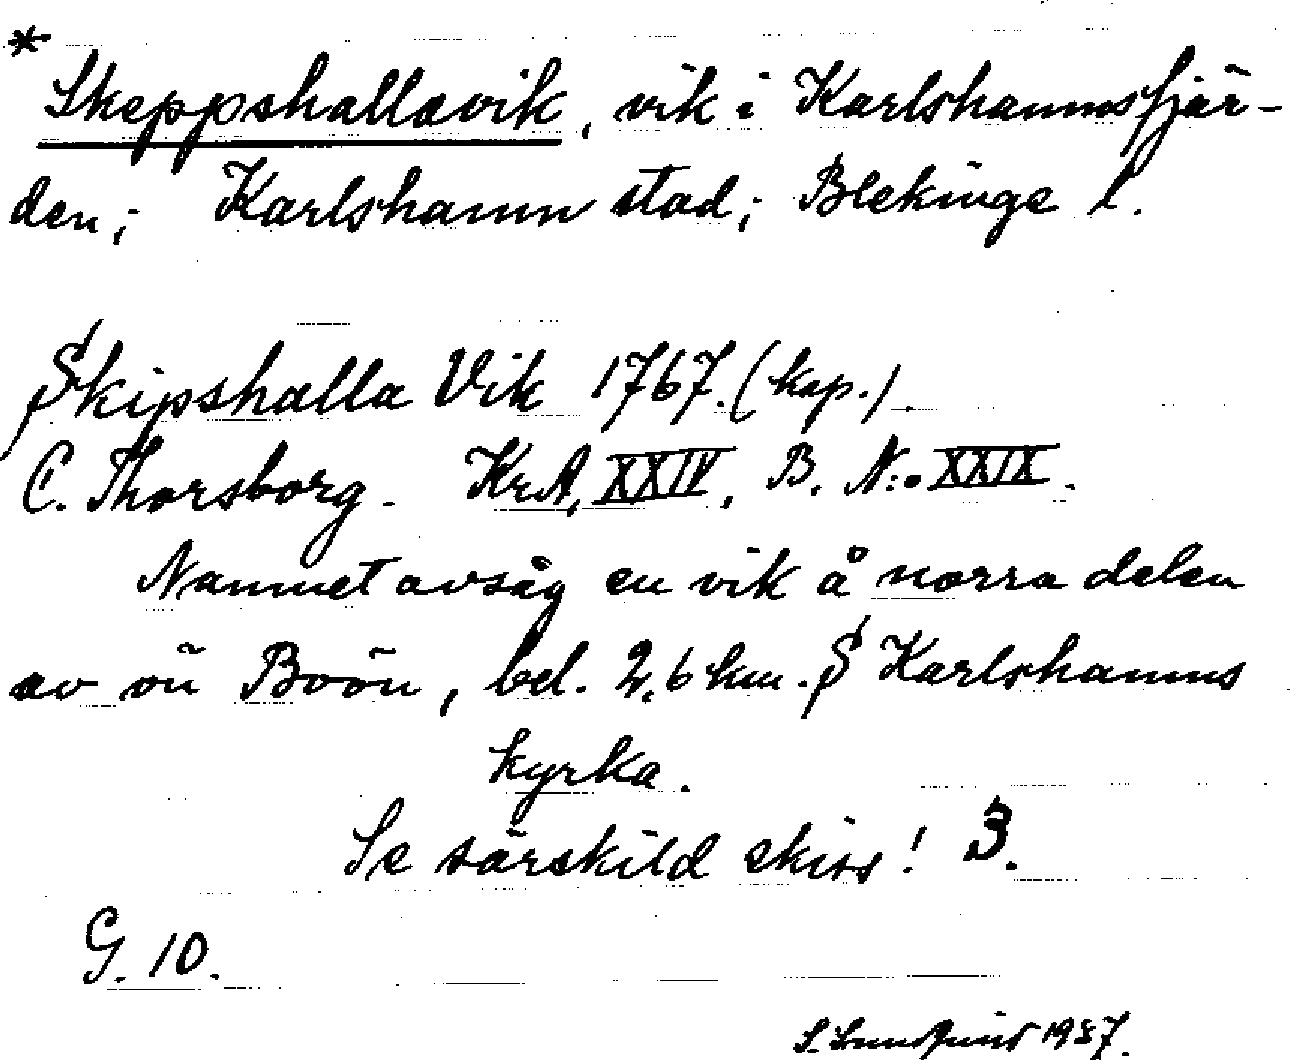 * Skeppshallavik, vik i Karlshamnsfjär-
den; Karlshamn stad; Blekinge l.
Skipshalla Vik 1767. (kap.).
C. Thorsborg. KrA, XXIV, B. N:o XXIX.
Namnet avsåg en vik å norra delen
av ön Boön, bel. 2,6 km. S Karlshamns
kyrka.
Se särskild skiss! 3.
G. 10.
S. 1957.